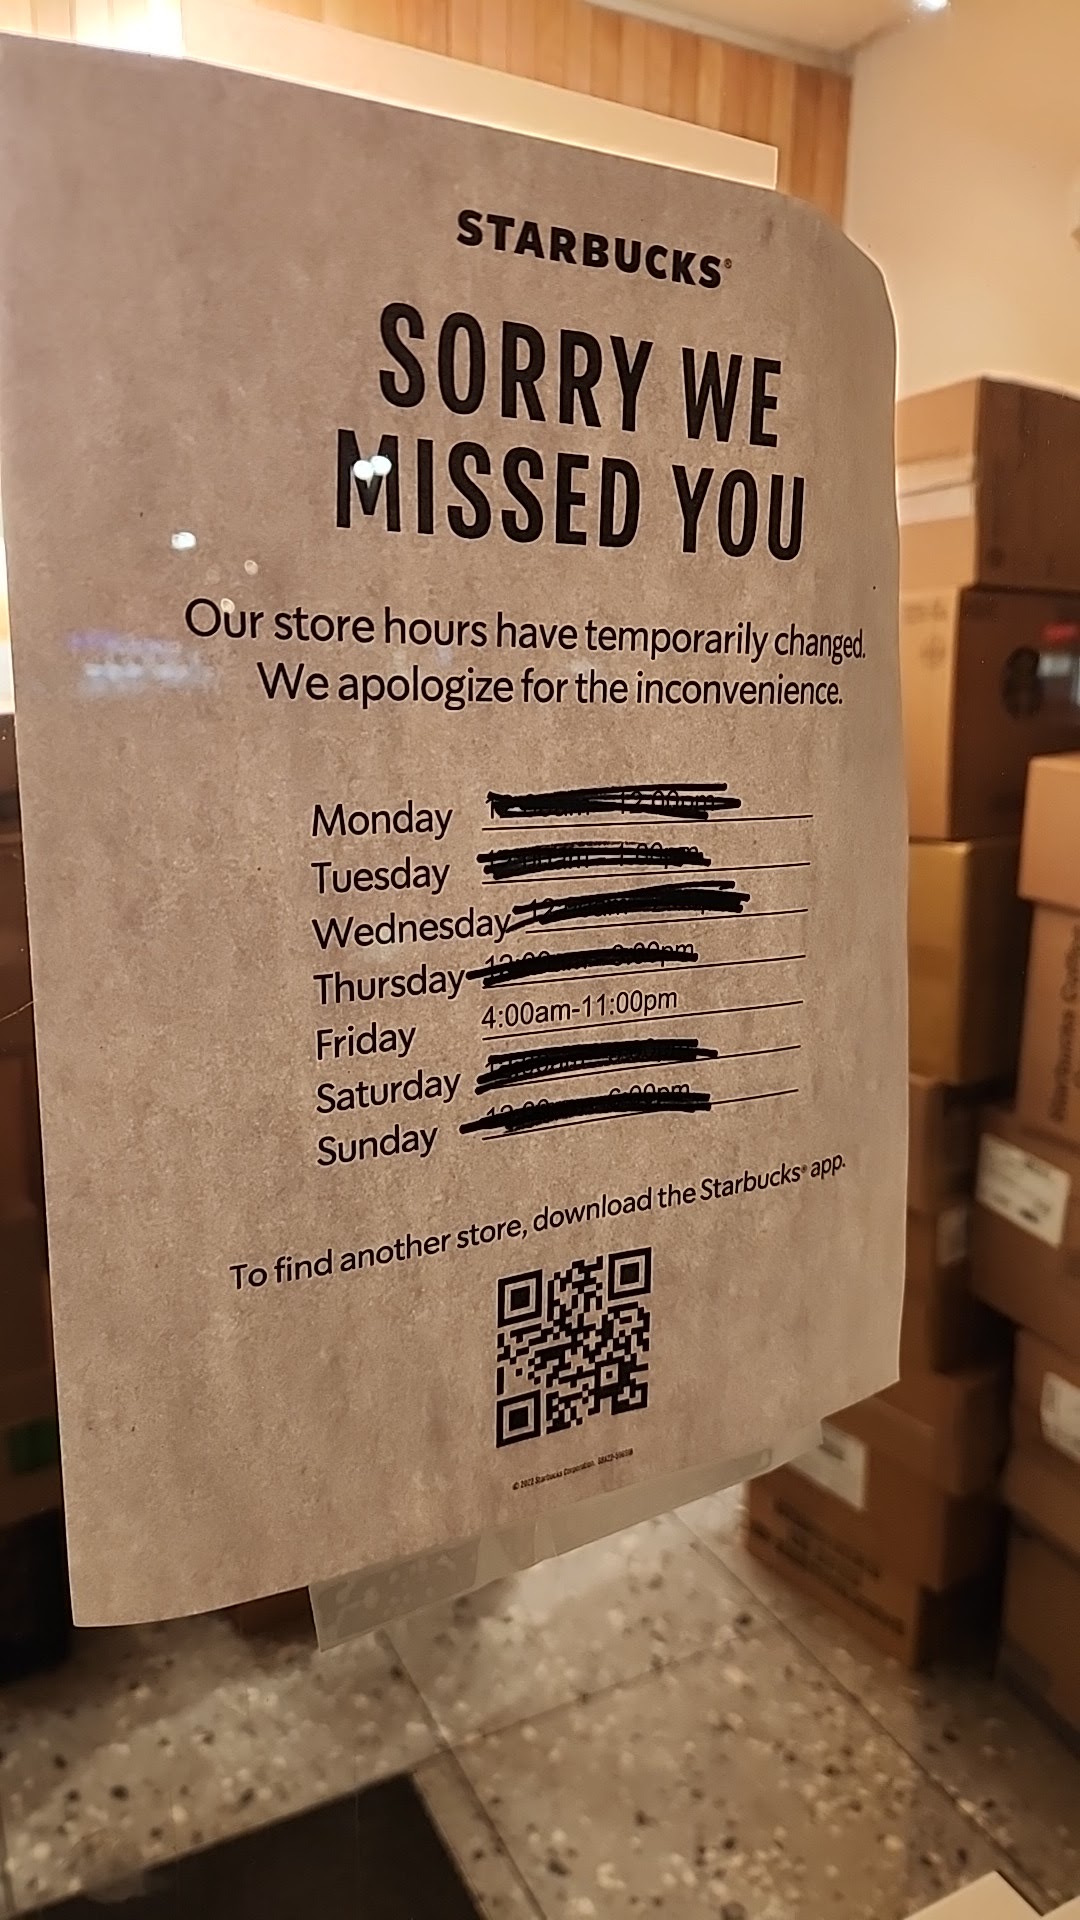 STARBUCKS®
SORRY WE
MISSED YOU
Our store hours have temporarily changed.
We apologize for the inconvenience.
Monday
Tuesday
Wednesday
Thursday
Friday 4:00am-11:00pm
Saturday
Sunday
To find another store, download the Starbucks® app.
© 2023 Starbucks Corporation.